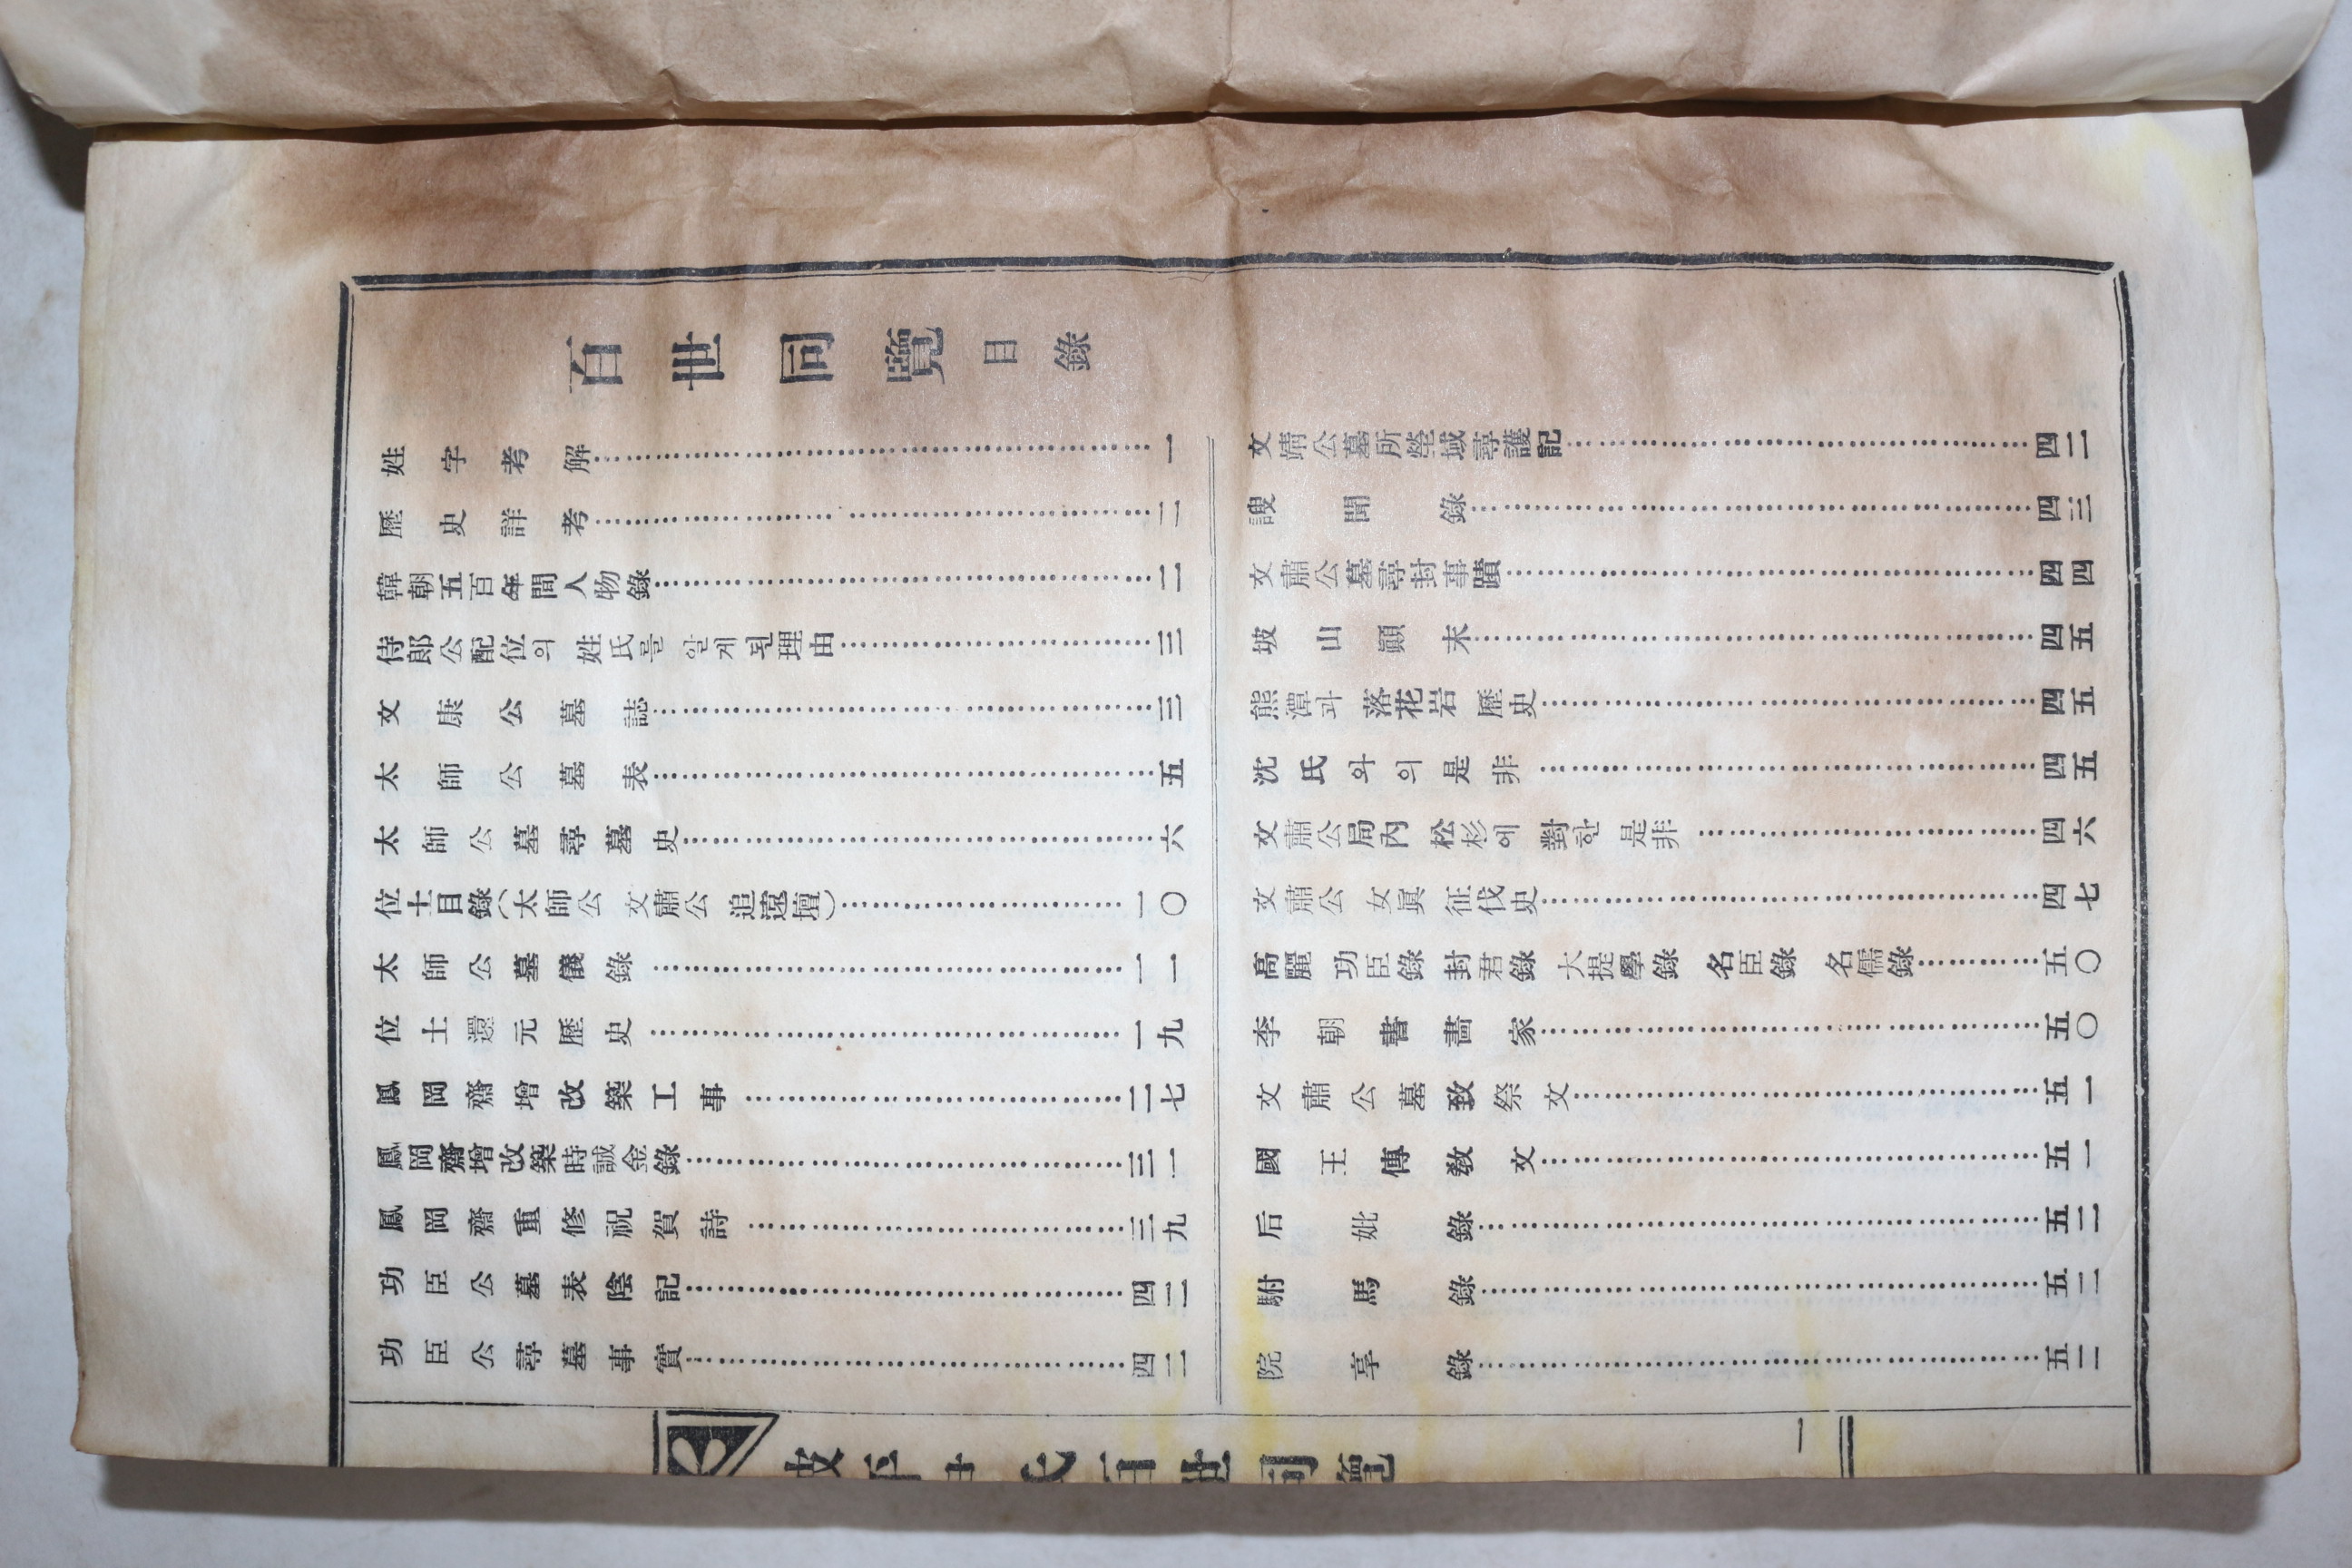 百世同覽目錄
姓字考解……一
歷史詳考……二
韓朝五百年間人物錄……二
侍郞公配位의 姓氏를 알게된 理由……三
文康公墓誌……三
太師公墓表……五
太師公墓尋墓史……六
位土目錄(太師公 文肅公 追遠壇)……一〇
太師公墓儀錄……一一
位土還元歷史……一九
鳳岡齋增改築工事……二七
鳳岡齋增改築時誠金錄……三一
鳳岡齋重修祝賀詩……三九
功臣公墓表陰記……四二
功臣公尋墓事實……四二
文靖公墓所塋域尋護記……四二
謏聞錄……四三
文肅公墓尋封事蹟……四四
坡山顚末……四五
熊潭과 落花岩 歷史……四五
沈氏와의 是非……四五
文肅公局內 松杉에 對한 是非……四六
文肅公 女眞 征伐史……四七
高麗 功臣錄 封君錄 大提學錄 名臣錄 名儒錄……五〇
李朝書畵家……五〇
文肅公墓致祭文……五一
國王傳敎文……五一
后妣錄……五二
駙馬錄……五二
院享錄……五二
坡平尹氏百世同覽
一